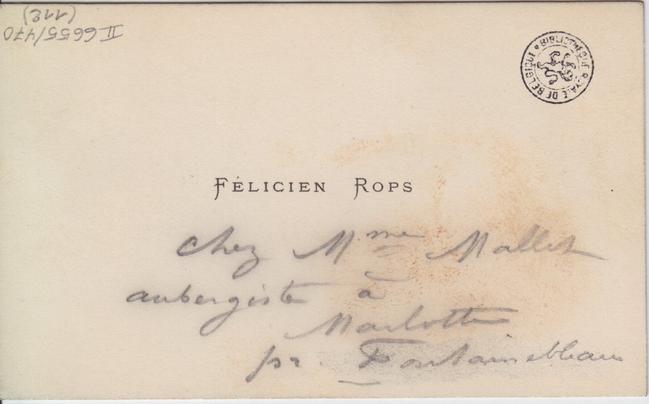 II 6655/470
(112)
BIBLIOTHÈQUE ROYALE DE BELGIQUE
FÉLICIEN ROPS
chez Mme Mallet
aubergiste à
Marlotte
pr Fontainebleau